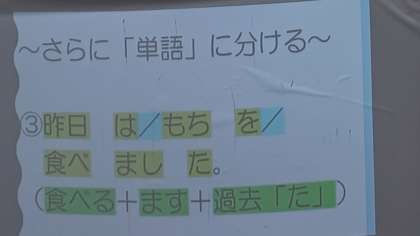 ～さらに「単語」に分ける～
③昨日 は／もち を／
食べ まし た。
(食べる＋ます＋過去「た」)